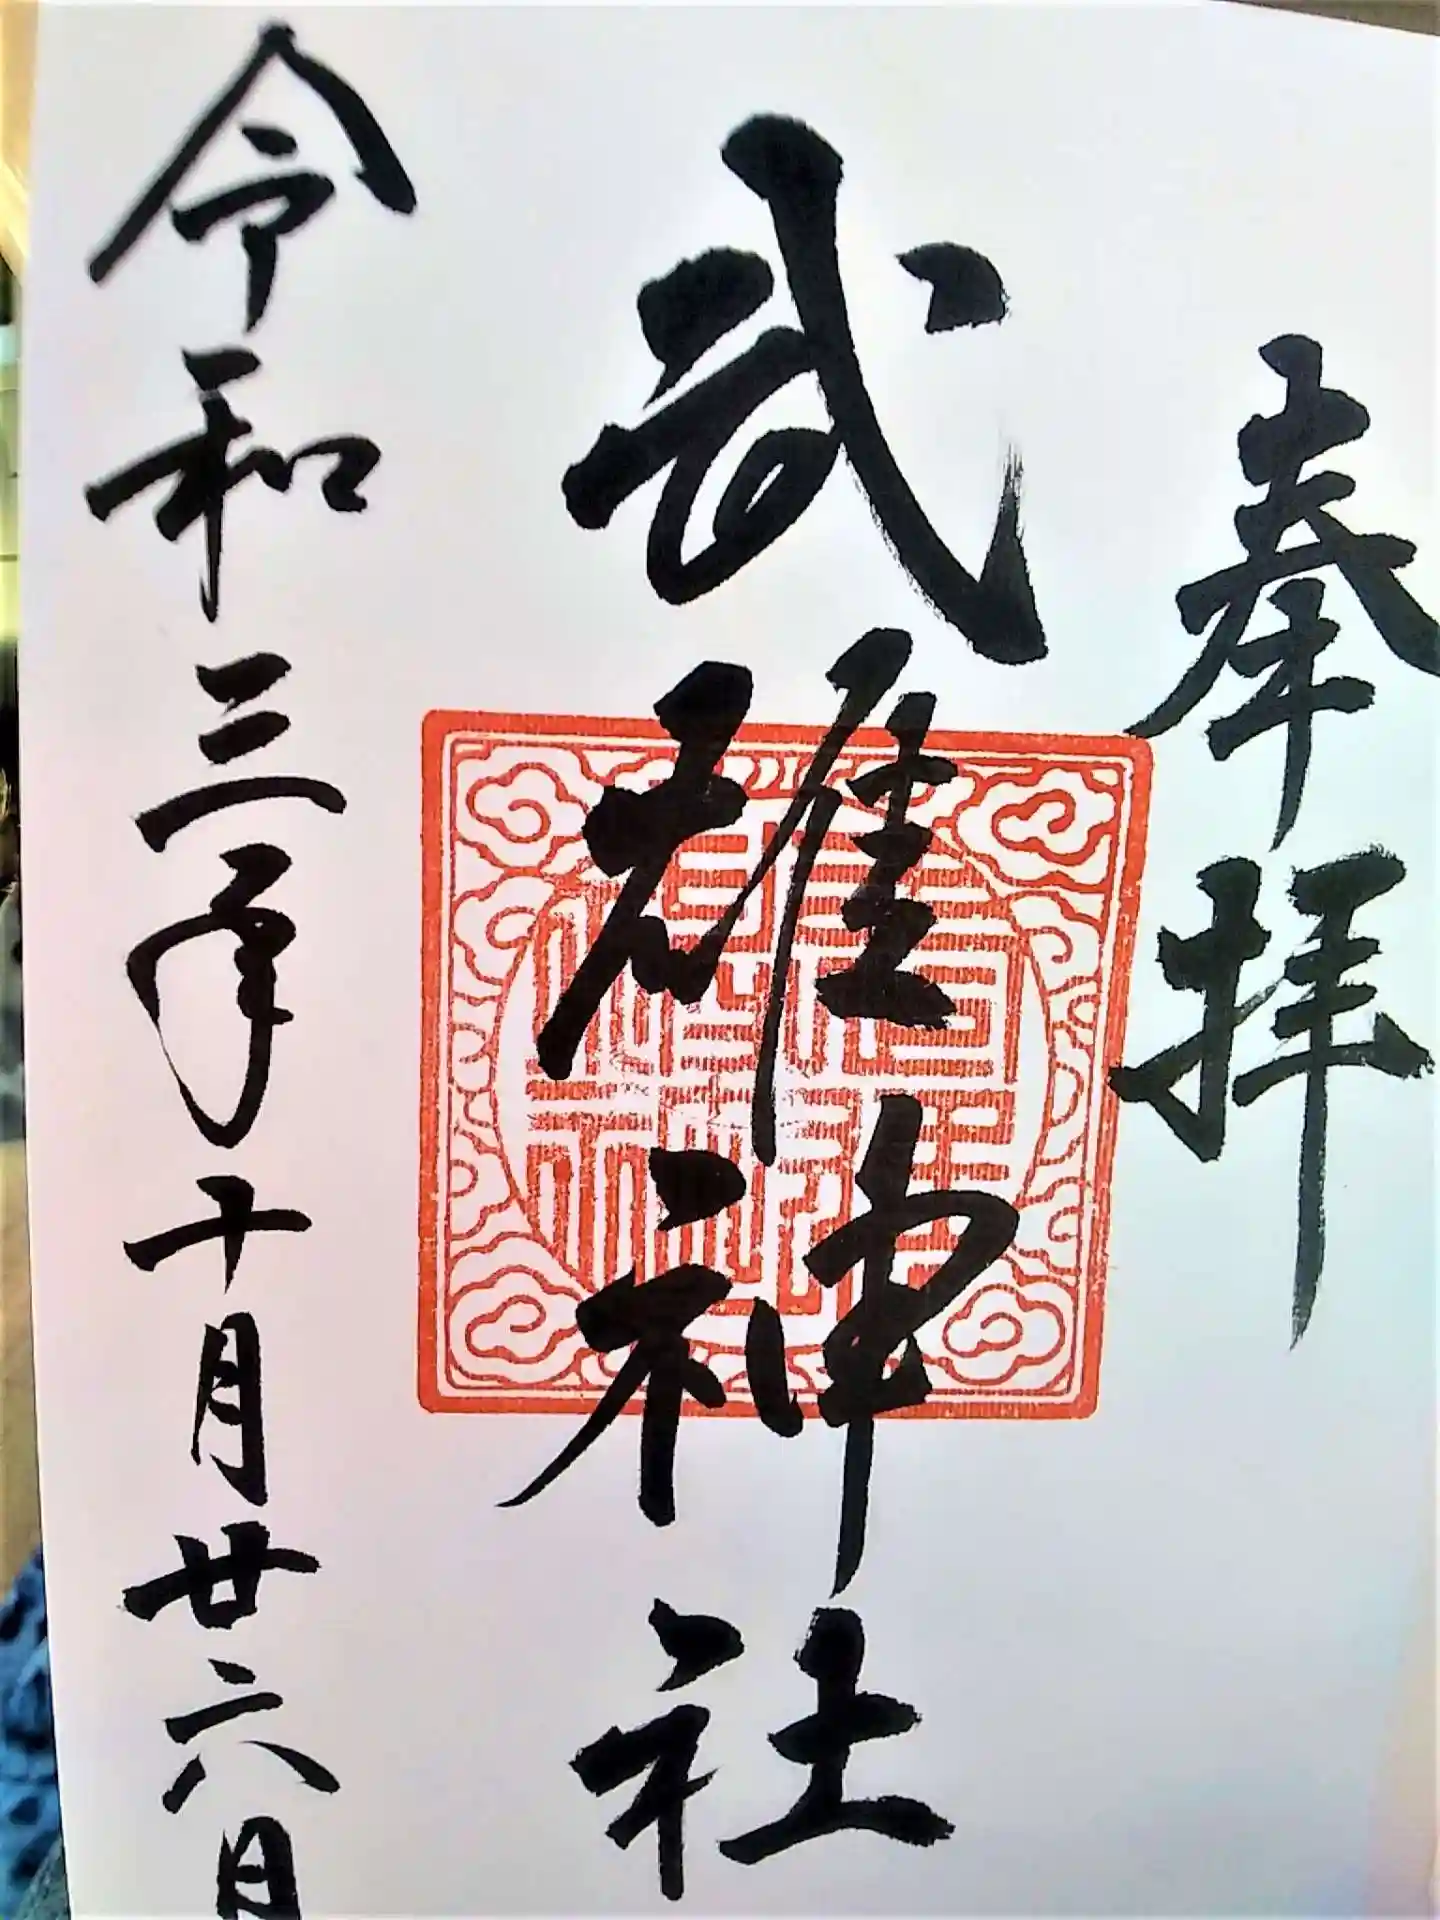 奉拝
武雄神社
令和三年十月廿六日